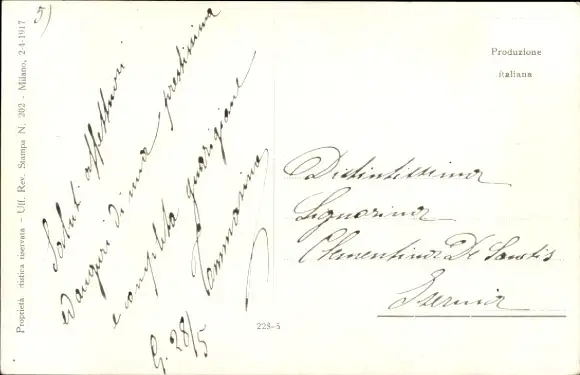 5)
Saluti affettuosi
ed auguri di una prestissima
e completa guarigione
Commarina
G. 28/5
Proprietà artistica riservata - Uff. Rev. Stampa N. 202 - Milano, 2-4-1917
229-5
Produzione
italiana
Distintissima
Signorina
Clementina De Sanctis
Isernia